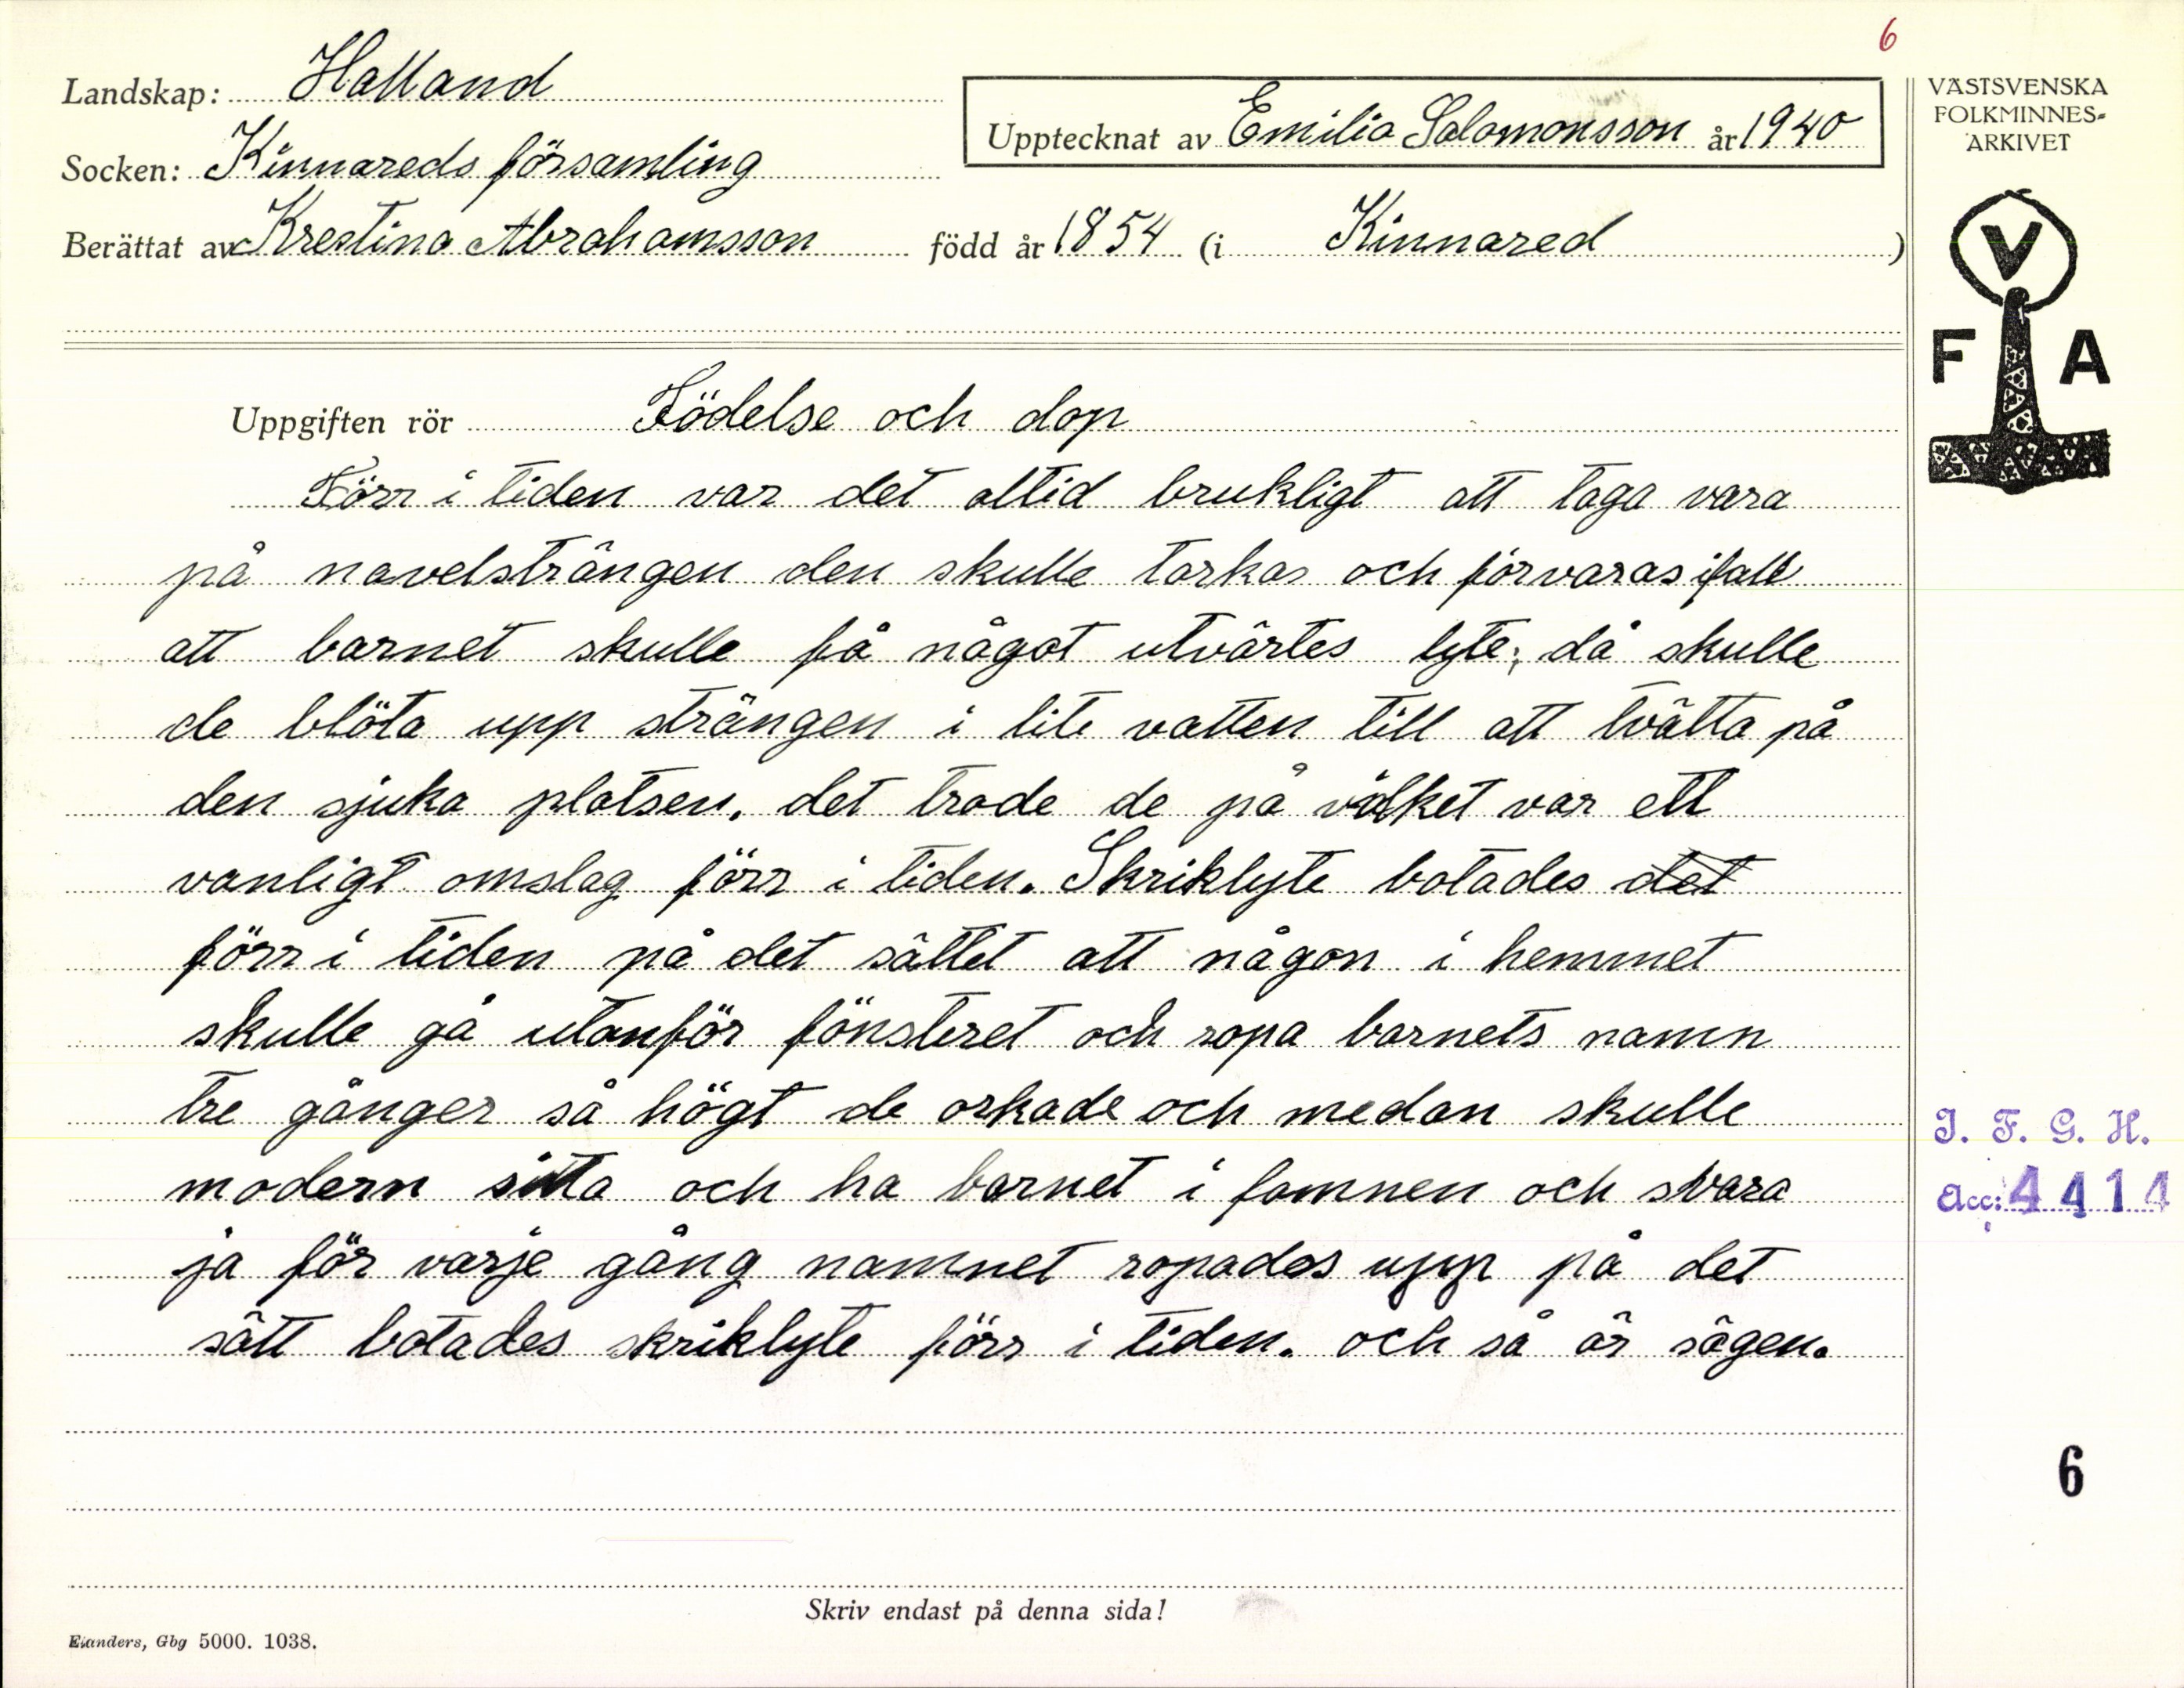 6
Landskap: Halland
Socken: Kinnareds församling
Upptecknat av Emilia Salomonsson år 1940
Berättat av Krestina Abrahamsson född år 1854 (i Kinnared )
VÄSTSVENSKA
FOLKMINNES-
ARKIVET
V
F A
Uppgiften rör Födelse och dop
Förr i tiden var det altid brukligt att taga vara
på navelsträngen den skulle torkas och förvaras ifall
att barnet skulle få något utvärtes lyte; då skulle
de blöta upp strängen i lite vatten till att tvätta på
den sjuka platsen. det trode de på vilket var ett
vanligt omslag förr i tiden. Skriklyte botades det
förr i tiden på det sättet att någon i hemmet
skulle gå utanför fönsteret och ropa barnets namn
tre gånger så högt de orkade och medan skulle
modern sitta och ha barnet i famnen och svara
ja för varje gång namnet ropades upp på det
sätt botades skriklyte förr i tiden. och så är sägen.
I. F. G. H.
Acc: 4414
6
Skriv endast på denna sida!
Elanders, Gbg 5000. 1038.